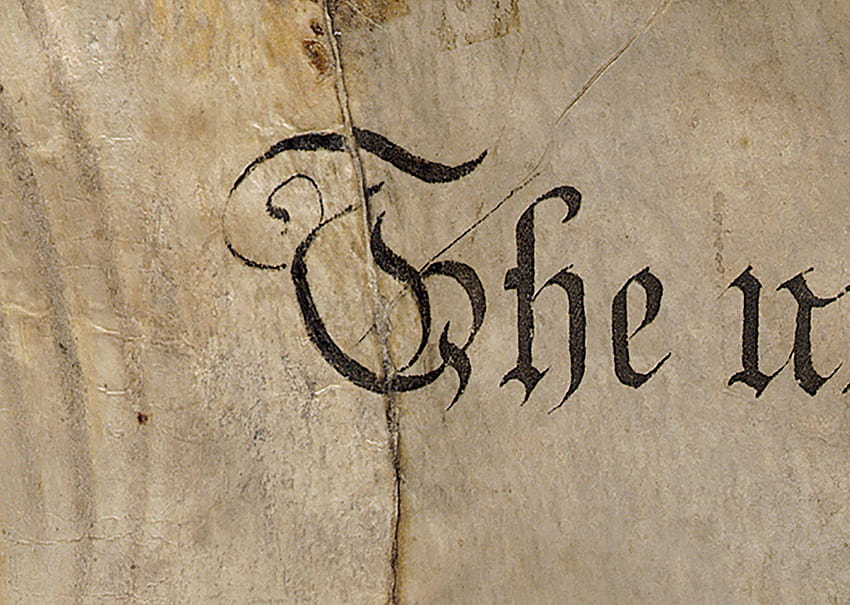 The u